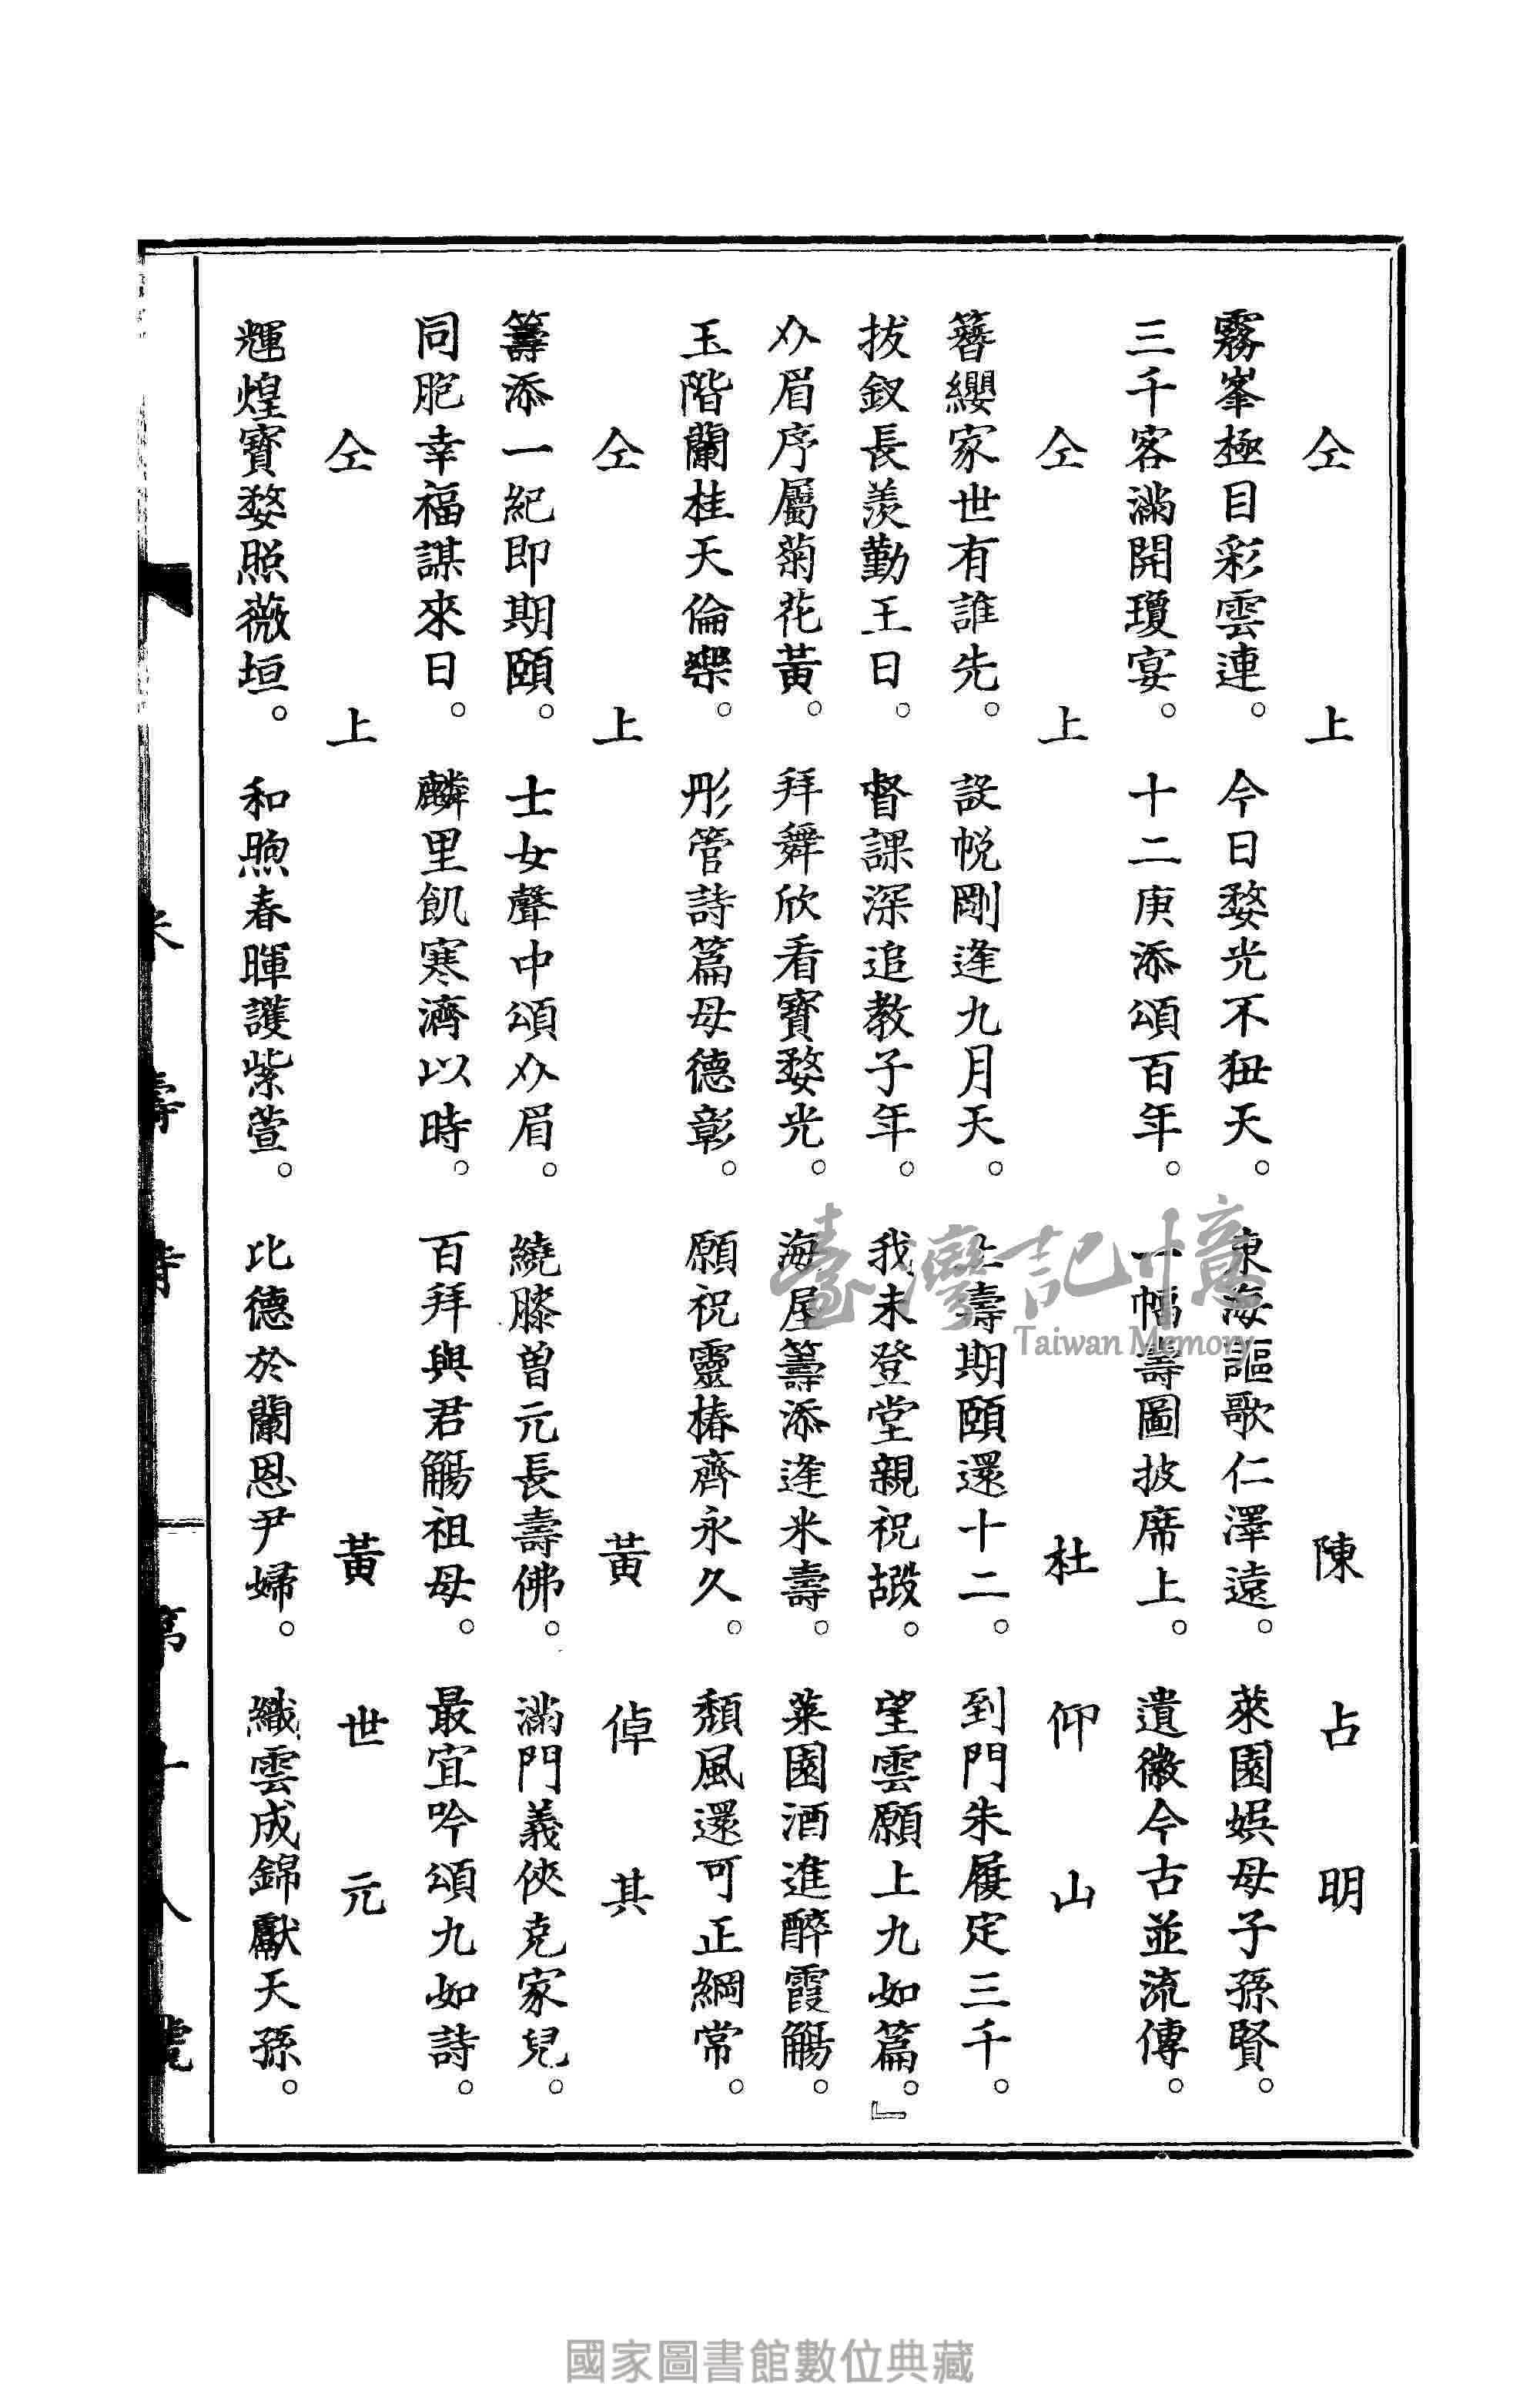 仝　上　陳　占　明
霧峯極目彩雲連。今日婺光不狃天。東海謳歌仁澤遠。萊園娛母子孫賢。
三千客滿開瓊宴。十二庚添頌百年。一幅壽圖披席上。遺徽今古並流傳。
仝　上　杜　仰　山
簪纓家世有誰先。設帨剛逢九月天。上壽期頤還十二。到門朱履定三千。
拔釵長羨勤王日。督課深追教子年。我未登堂親祝嘏。望雲願上九如篇。』
𠆩眉序屬菊花黃。拜舞欣看寶婺光。海屋籌添逢米壽。萊園酒進醉霞觴。
玉階蘭桂天倫樂。彤管詩篇母德彰。願祝靈椿齊永久。頹風還可正綱常。
仝　上　黃　倬　其
籌添一紀即期頤。士女聲中頌𠆩眉。繞膝曾元長壽佛。滿門義俠克家兒。
同胞幸福謀來日。麟里飢寒濟以時。百拜與君觴祖母。最宜吟頌九如詩。
仝　上　黃　世　元
輝煌寶婺照薇垣。和煦春暉護紫萱。比德於蘭恩尹婦。織雲成錦獻天孫。
臺灣記憶
Taiwan Memory
國家圖書館數位典藏